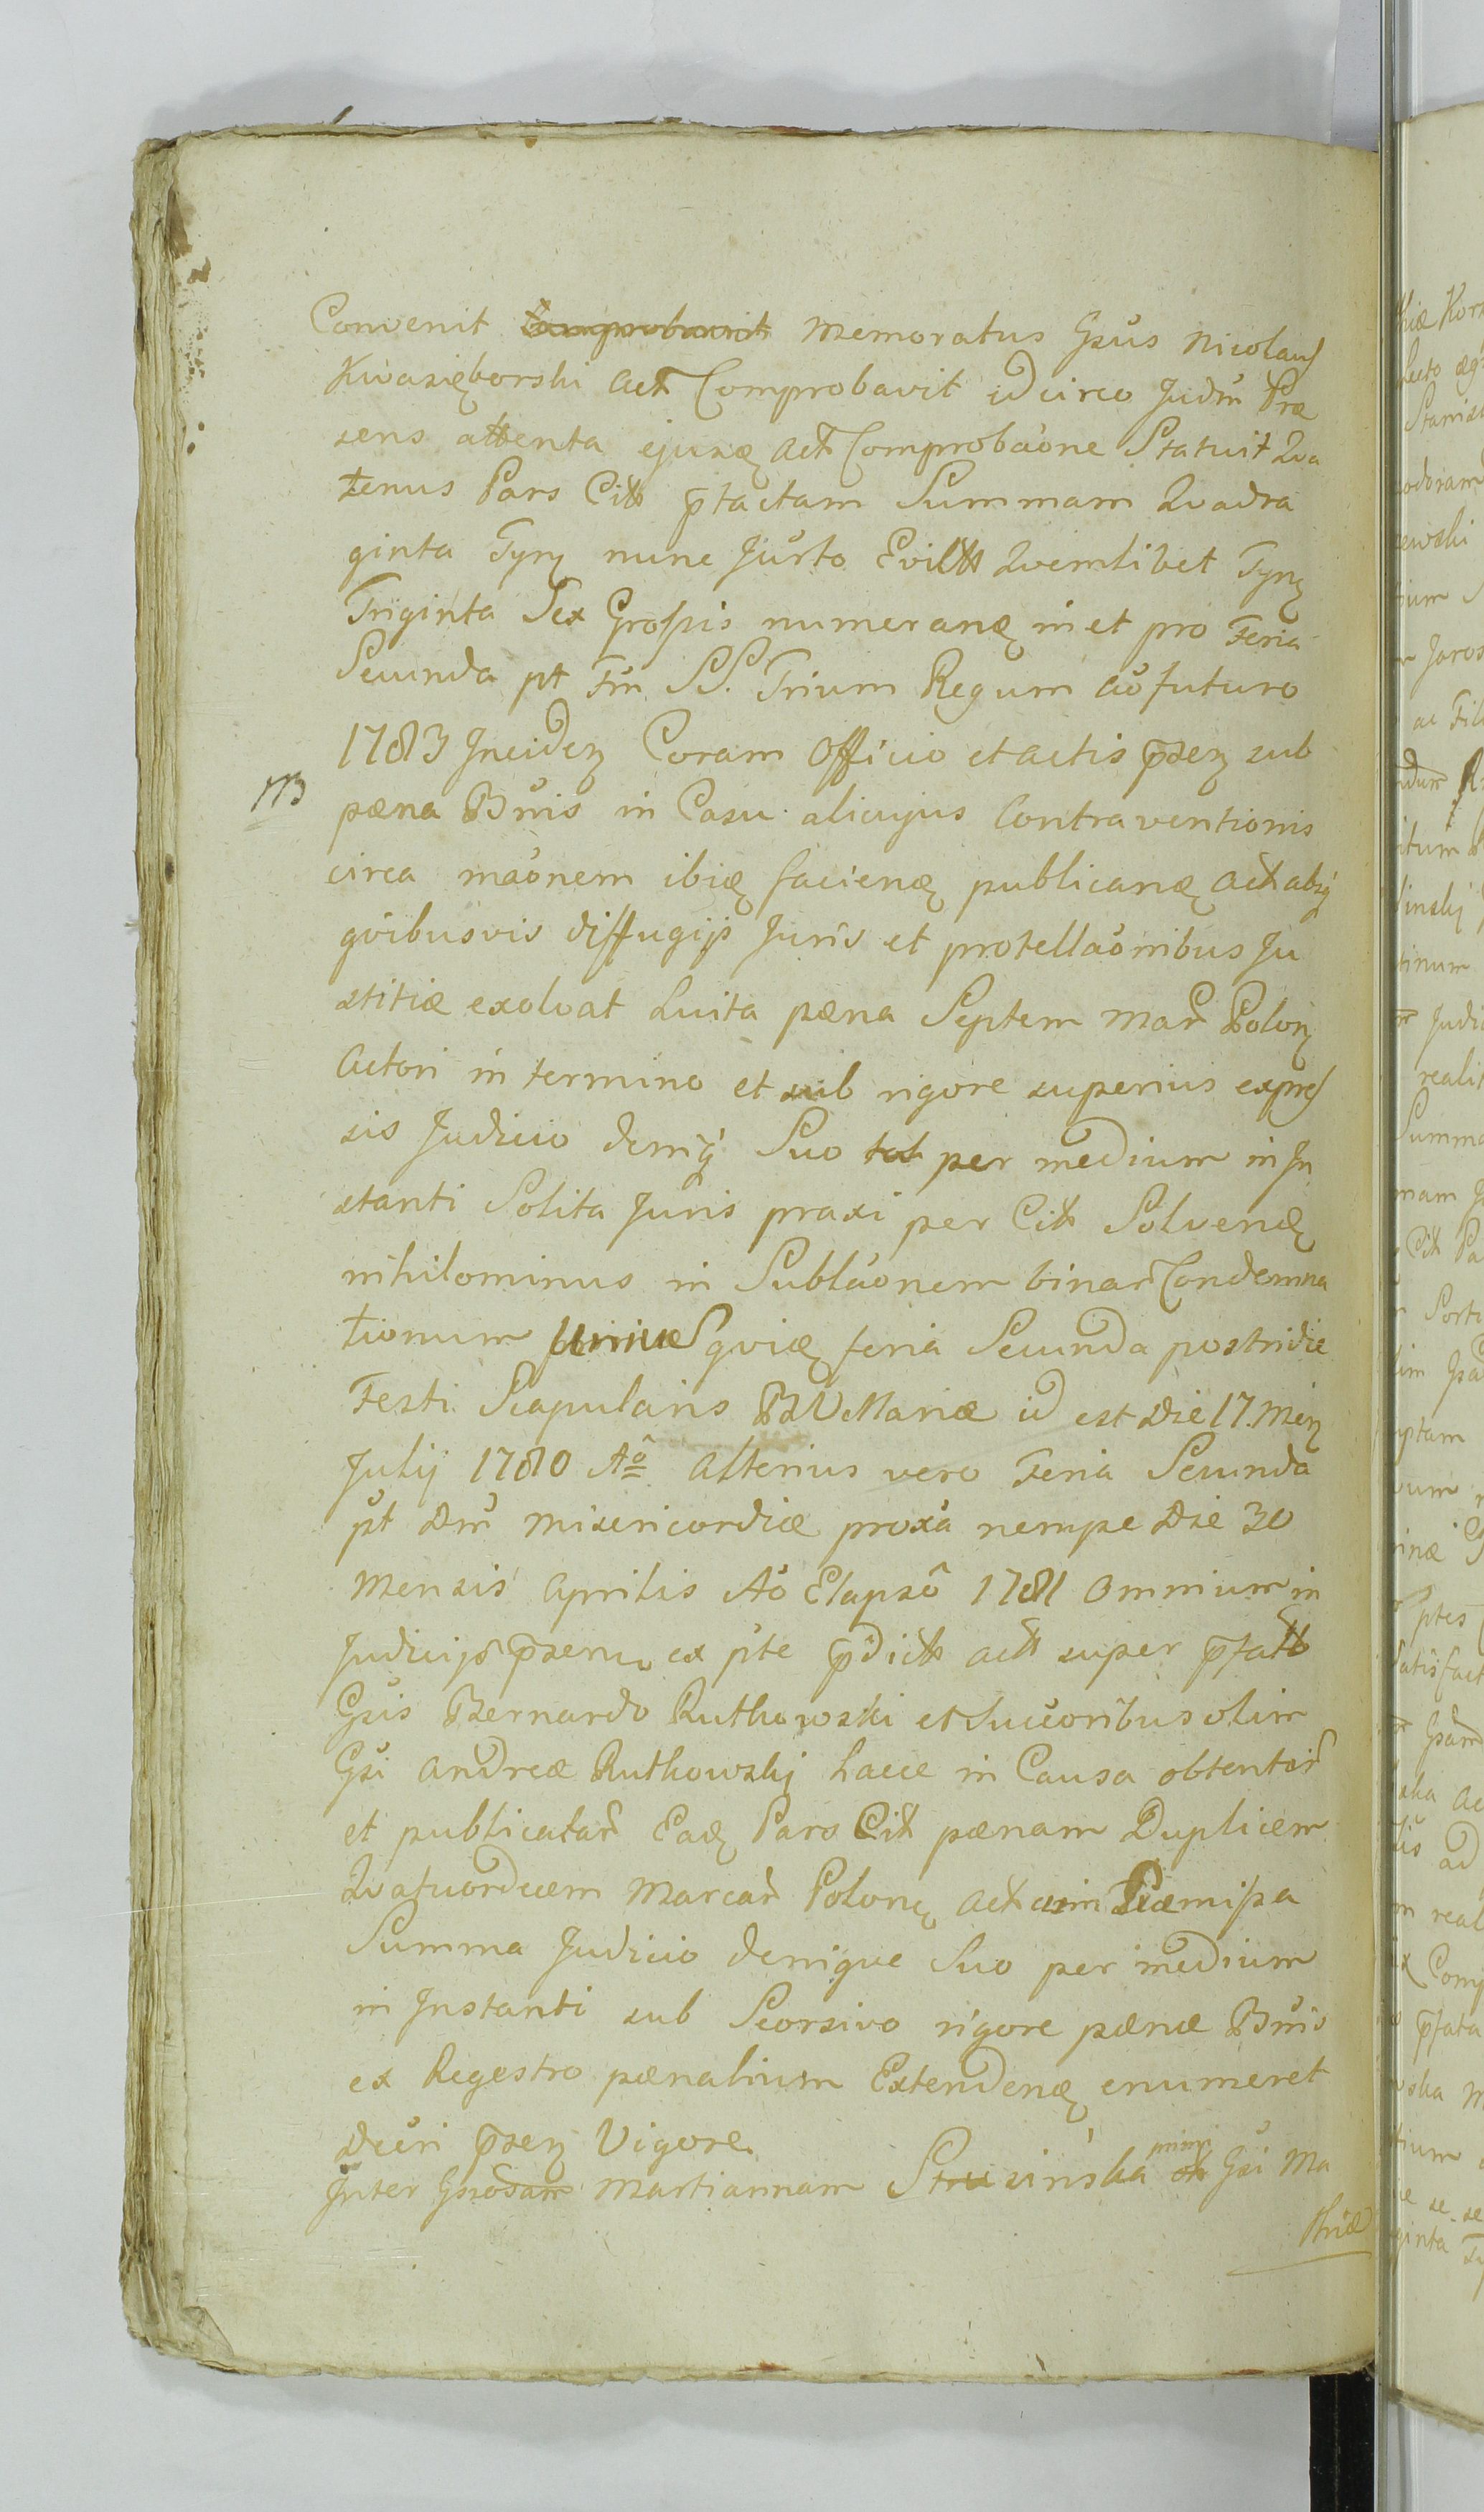 Convenit Comprobavit Memoratus Gsus Nicolaus
Kwasięborski Act Comprobavit idcirco Judm Præ
sens attenta ejusę Act Comprobaōne Statuit Qva
tenus Pars Citt p̄tactam Summam Qvadra
ginta Tynf nunc Justo Evictt Qvemlibet Tynf
Triginta Sex Grossis numeranę in et pro Feria
Secunda pt Fm SS. Trium Regum aō futuro
1783 Incidē Coram Officio et actis p̄sen sub
pæna Bnis in Casu alicujus Contraventionis
circa maōnem ibię facienę publicanę Act absq
qvibusvis diffugijs Juris et protellaōnibus Ju
stitiæ exolvat Luita pæna Septem Mar Polon
Actori in termino et sub rigore superius expres
sis Judicio deniq Suo tot per medium in In
stanti Solita Juris praxi per Citt Solvenę
nihilominus in Sublaōnem binar Condemna
tionum Unius qvię feria Secunda postridie
Festi Scapularis BVMariæ id est Die 17. Men
Julij 1780 Aō Alterius vero Feria Secunda
pt Dm Misericordiæ proxa nempe Die 30
Mensis Aprilis Aō Elapsō 1781 Omnium in
Judicijs p̄senu ex pte p̄dictt actt super p̄fatt
Gsis Bernardo Rutkowski et Succoribus olim
Gsi Andreæ Rutkowskij hacce in Causa obtentar
et publicatar Eadę Pars Citt pænam Duplicem
Qvatuordecem Marcar Polonę Act cum Præmissa
Summa Judicio denique Suo per medium
in Instanti sub Seorsivo rigore pænæ Bnis
ex Regestro pænalium Extendenę enumeret
Dcēri p̄sen Vigore
113
Inter Gnosam Martiannam Strusinska primi Gsi Ma
thiæ